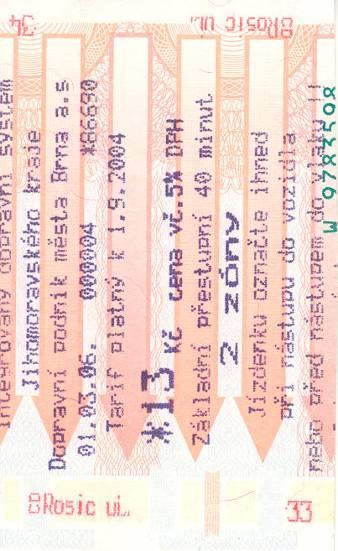 Integrovaný dopravní systém
Jihomoravského kraje
Dopravní podnik města Brna a.s
01.03.06. 000004 *86690
Tarif platný k 1.9.2004
*13 Kč cena vč.5% DPH
Základní přestupní 40 minut
2 zóny
Jízdenku označte ihned
při nástupu do vozidla
nebo před nástupem do vlaku !!
W 9783598
34
8Rosic ul.
8Rosic ul.
33